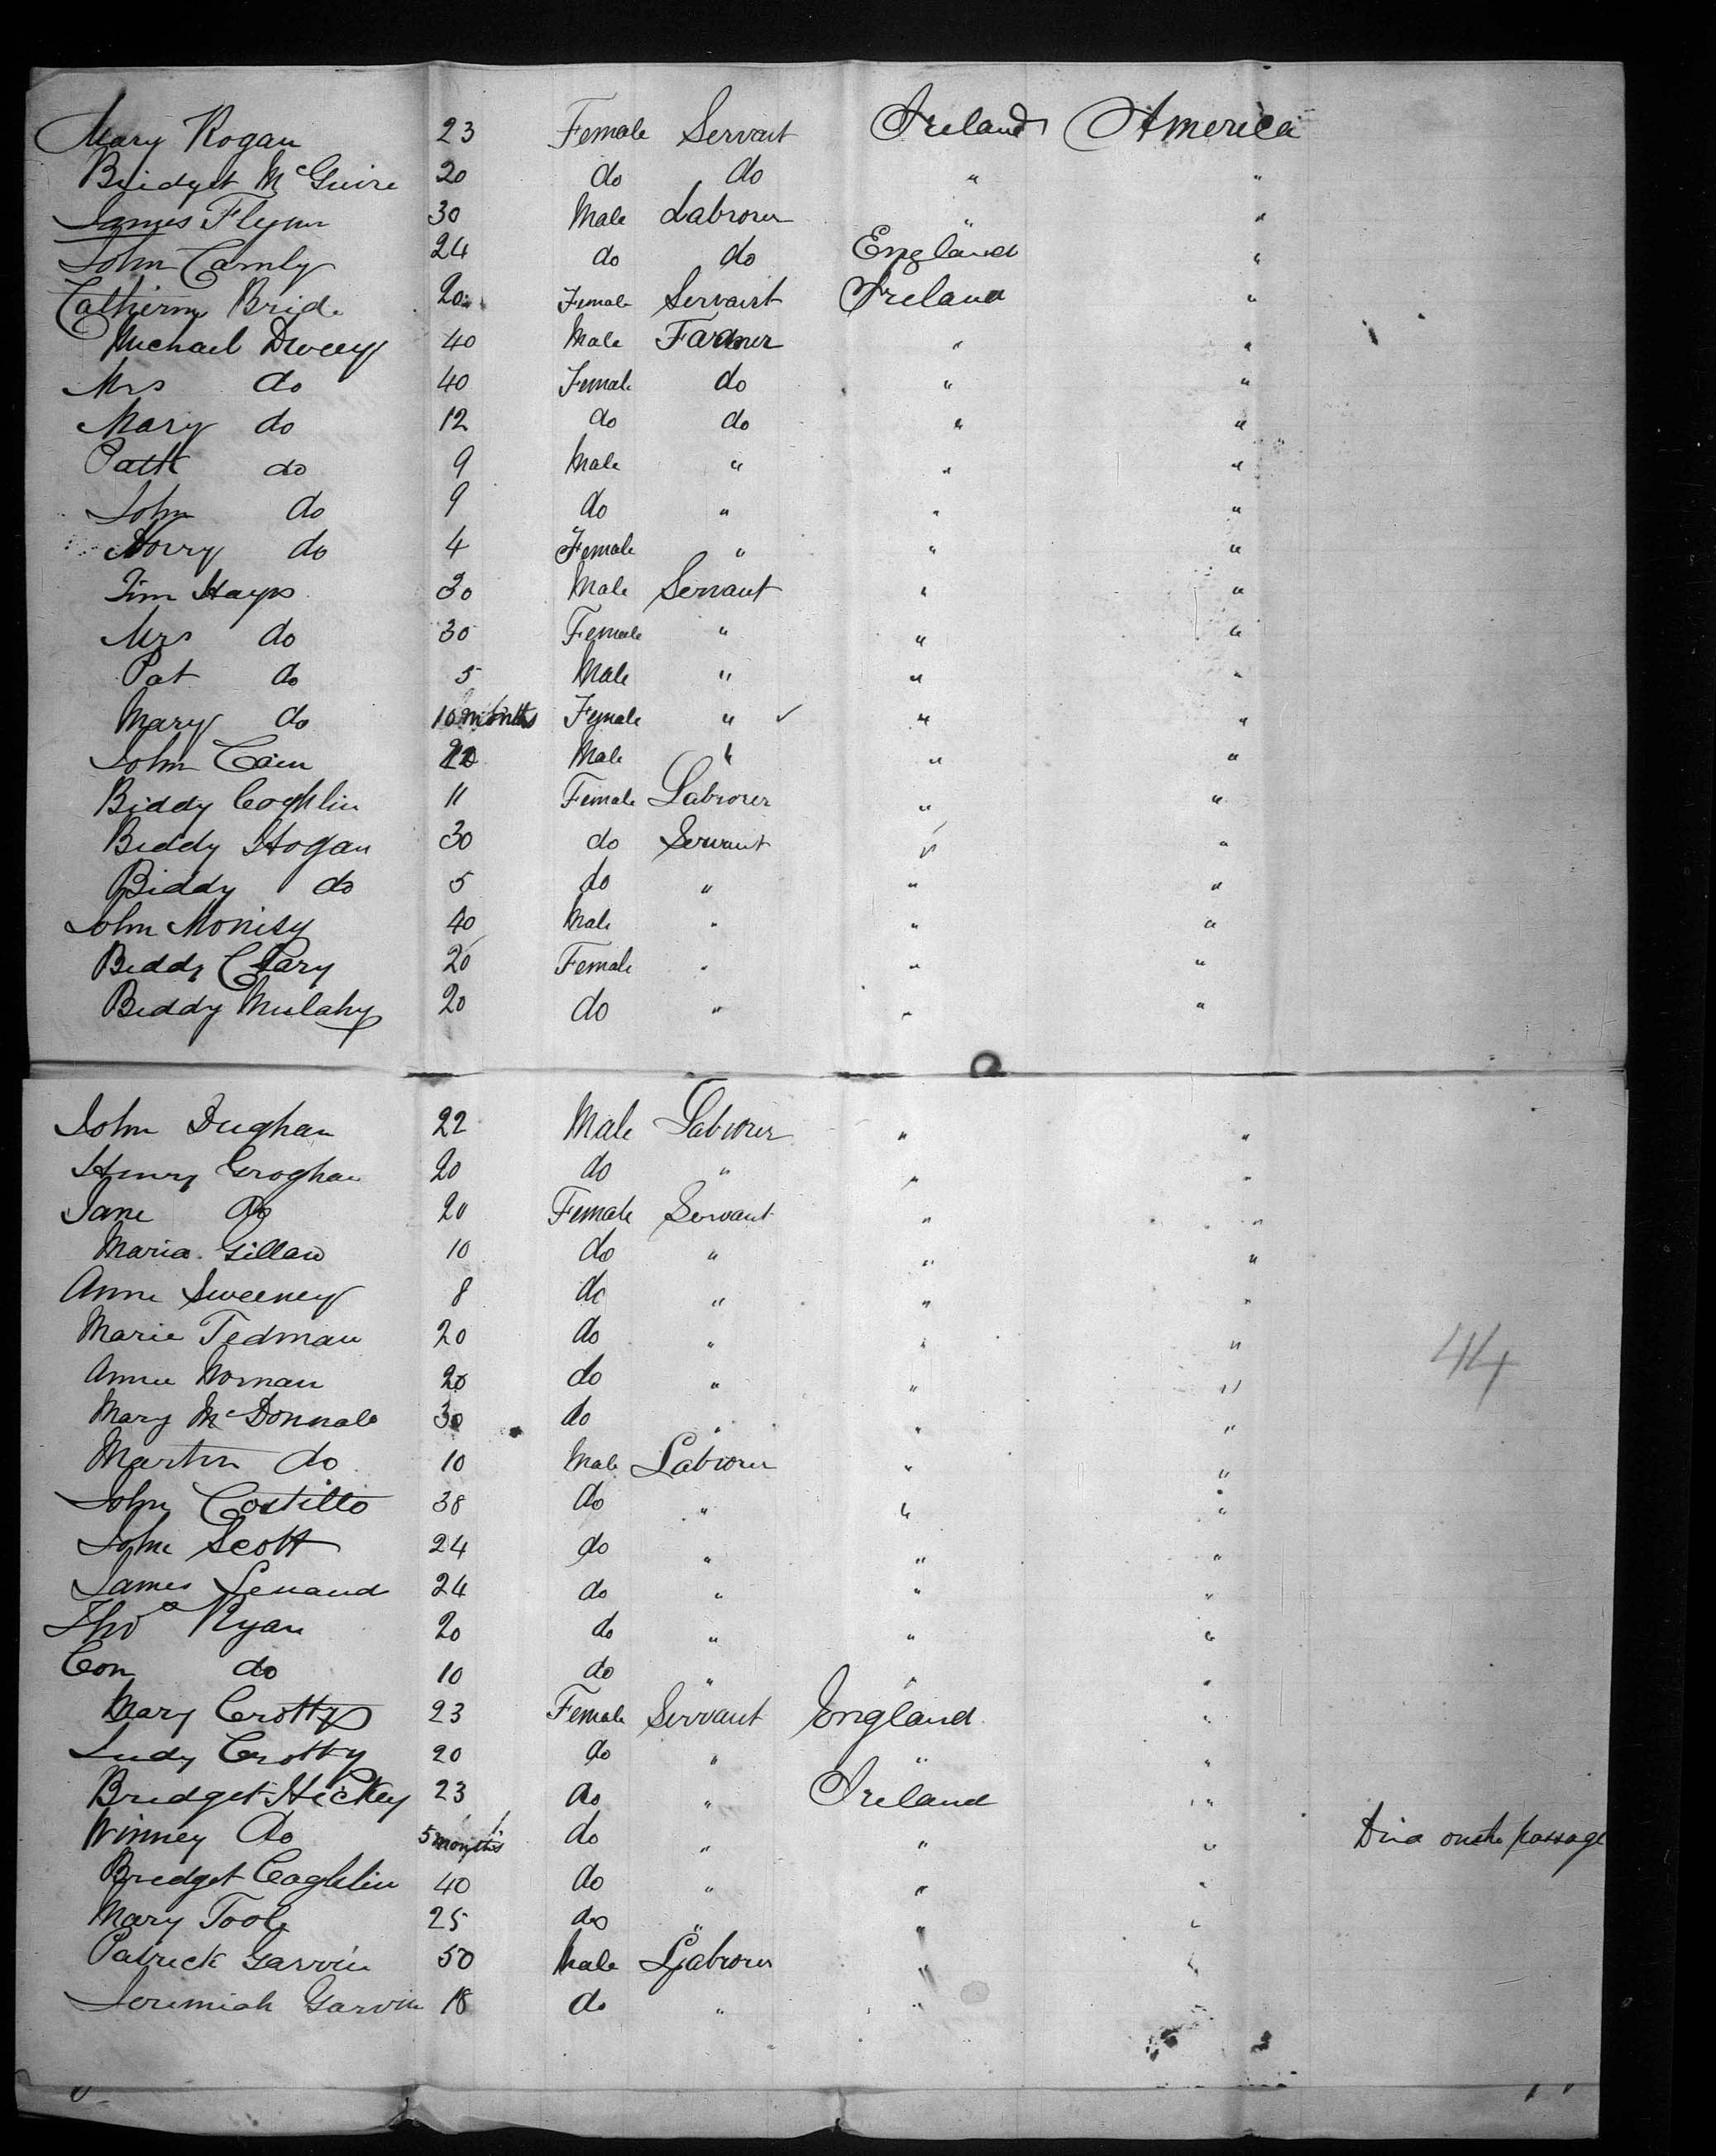 Mary Rogan 23 Female Servant Ireland America
Bridget McGuire 20 do do " "
James Flynn 30 Male Labrorer " "
John Carnly 24 do do England "
Catherine Brid 20 Female Servant Ireland "
Michael Dwcey 40 Male Farmer " "
Mrs do 40 Female do " "
Mary do 12 do do " "
Patk do 9 Male " " "
John do 9 do " " "
Norry do 4 Female " " "
Tim Hays 30 Male Servant " "
Mrs do 30 Female " " "
Pat do 5 Male " " "
Mary do 10 months Female " ✓ " "
John Cain Male " " "
Biddy Coghlin 11 Female Labrorer " "
Biddy Hogan 30 do Servant " "
Biddy do 5 do " " "
John Monisy 40 Male " " "
Biddy Clary 20 Female " " "
Biddy Mulahy 20 do " " "
John Dughan 22 Male Labrorer " "
Henry Groghan 20 do " " "
Jane do 20 Female Servant " "
Maria Gillan 10 do " " "
Anne Sweeney 8 do " " "
Marie Tedman 20 do " " "
44
Annie Nornan 20 do " " "
Mary McDonnald 30 do " " "
Martin do 10 Male Labrorer " "
John Costillo 38 do " " "
John Scott 24 do " " "
James Lenand 24 do " " "
Thos Ryan 20 do " " "
Con do 10 do " " "
Mary Crotty 23 Female Servant England "
Judy Crotty 20 do " " "
Bridget Hickey 23 do " Ireland "
Winney do 5 months do " " " Died on the passage
Bridget Coghlin 40 do " " "
Mary Toole 25 do " " "
Patrick Garvin 50 Male Labrorer " "
Jeremiah Garvin 18 do " "